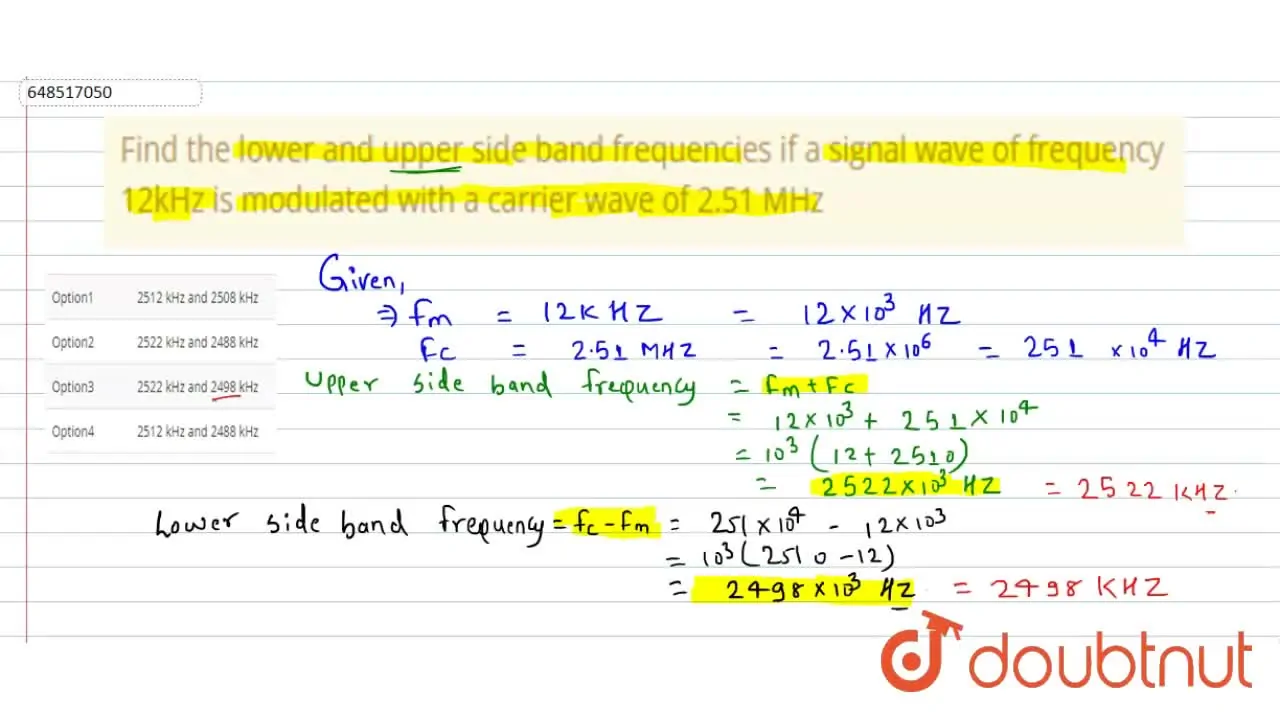 648517050
Find the lower and upper side band frequencies if a signal wave of frequency
12kHz is modulated with a carrier wave of 2.51 MHz
Option1 2512 kHz and 2508 kHz
Option2 2522 kHz and 2488 kHz
Option3 2522 kHz and 2498 kHz
Option4 2512 kHz and 2488 kHz
Given,
⇒ fm = 12K HZ = 12×10³ HZ
Fc = 2.51 MHZ = 2.51×10⁶ = 251 ×10⁴ HZ
Upper side band frequency = fm + Fc
= 12×10³ + 251×10⁴
= 10³ (12+ 2510)
= 2522×10³ HZ = 2522 KHZ.
Lower side band frequency = fc - fm = 251×10⁴ - 12×10³
= 10³(2510 -12)
= 2498×10³ HZ = 2498 KHZ
doubtnut